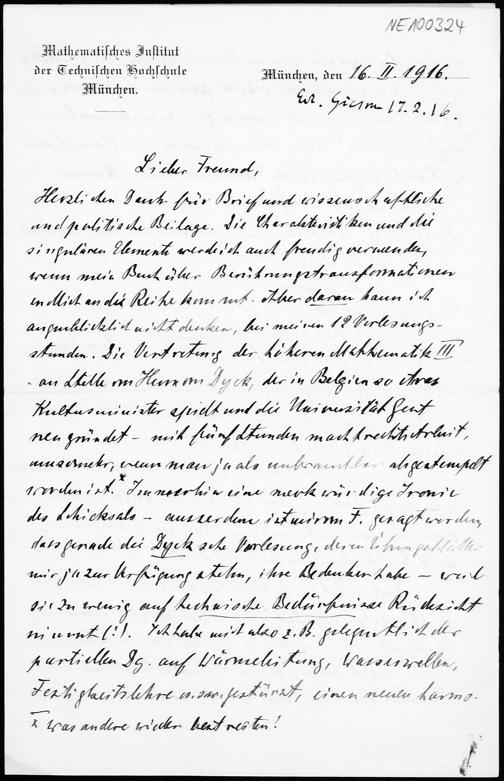 NE100324
Mathematisches Institut
der Technischen Hochschule
München.
München, den 16. II. 1916.
17.2.16.
Lieber Freund,
Herzlichen Dank für Brief und wissenschaftliche
und politische Beilage. Die Charakteristiken und die
singulären Elemente werde ich auch freudig verwenden,
wenn mein Buch über Berührungstransformationen
endlich an die Reihe kommt. Aber daran kann ich
augenblicklich nicht denken, bei meinen 12 Vorlesungs-
stunden. Die Vertretung der höheren Mathematik III
- an Stelle von Herrn von Dyck, der in Belgien so etwas
Kultusminister spielt und die Universität Gent
neu gründet - mit fünf Stunden macht rechte Arbeit,
umsomehr, wenn man ja als unbrauchbar abgestempelt
worden ist.* Immerhin eine merkwürdige Ironie
des Schicksals - ausserdem ist mir von F. gesagt worden,
dass gerade die Dycksche Vorlesung, deren Übungsblätter
mir ja zur Verfügung stehn, ihre Bedenken habe - weil
sie zu wenig auf technische Bedürfnisse Rücksicht
nimmt (!). Ich habe mich also z. B. gelegentlich der
partiellen Dg. auf Wärmeleitung, Wasserwellen,
Festigkeitslehre u.s.w. gestürzt, einen neuen harmo-
* was andere wieder bestreiten!